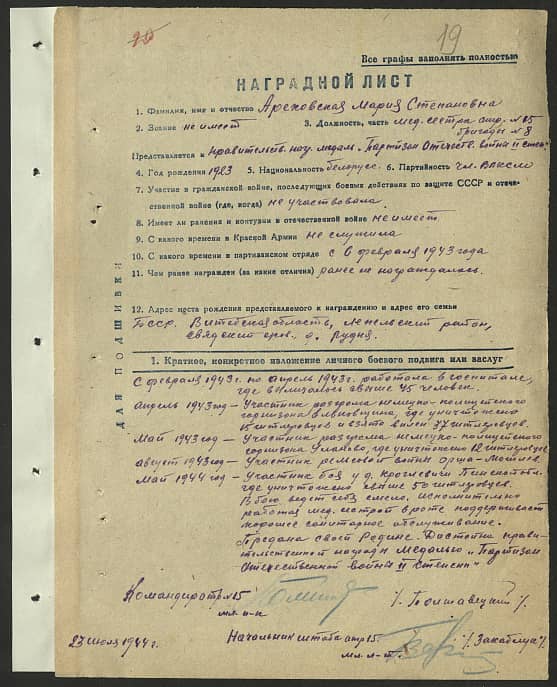 25
19
Все графы заполнять полностью
НАГРАДНОЙ ЛИСТ
1. Фамилия, имя и отчество Ареховская Мария Степановна
2. Звание не имеет 3. Должность, часть мед. сестра отр. №15
бригады №8
Представляется к правительств. наг. медаль „Партизан Отечеств. войны" II степ.
4. Год рождения 1923 5. Национальность белорусс. 6. Партийность чл. ВЛКСМ
7. Участие в гражданской войне, последующих боевых действиях по защите СССР и отече-
ственной войне (где, когда) не участвовала
8. Имеет ли ранения и контузии в отечественной войне не имеет
9. С какого времени в Красной Армии не служила
10. С какого времени в партизанском отряде с 6 февраля 1943 года
11. Чем ранее награжден (за какие отличия) ранее не награждалась.
12. Адрес места рождения представляемого к награждению и адрес его семьи
БССР. Витебская область, Лепельский район,
д. Рудня.
ДЛЯ ПОДШИВКИ
1. Краткое, конкретное изложение личного боевого подвига или заслуг
С февраля 1943 г. по апрель 1943 г. работала в госпитале,
где свыше 45 человек.
Апрель 1943 год – Участник разгрома немецко-полицейского
гарнизона где уничтожено
15 гитлеровцев и взято в плен 37 гитлеровцев.
Май 1943 год – Участник разгрома немецко-полицейского
гарнизона Уланово, где уничтожено 12 гитлеровцев
Август 1943 год – Участник рельсовой войны Орша-Могилев.
Май 1944 год – Участник боя у д. Крогževичи
где уничтожено свыше 50 гитлеровцев.
В бою ведет себя смело, исполнительно
работая мед. сестрой в роте поддерживает
хорошее санитарное обслуживание.
Предана своей Родине. Достойна прави-
тельственной награды медалью „Партизан
Отечественной войны II степени"
Командир отр. №15
мл. л-т /Полтавецкий/.
Начальник штаба отр 15
мл. л-т /Закаблук/.
27 июля 1944 г.